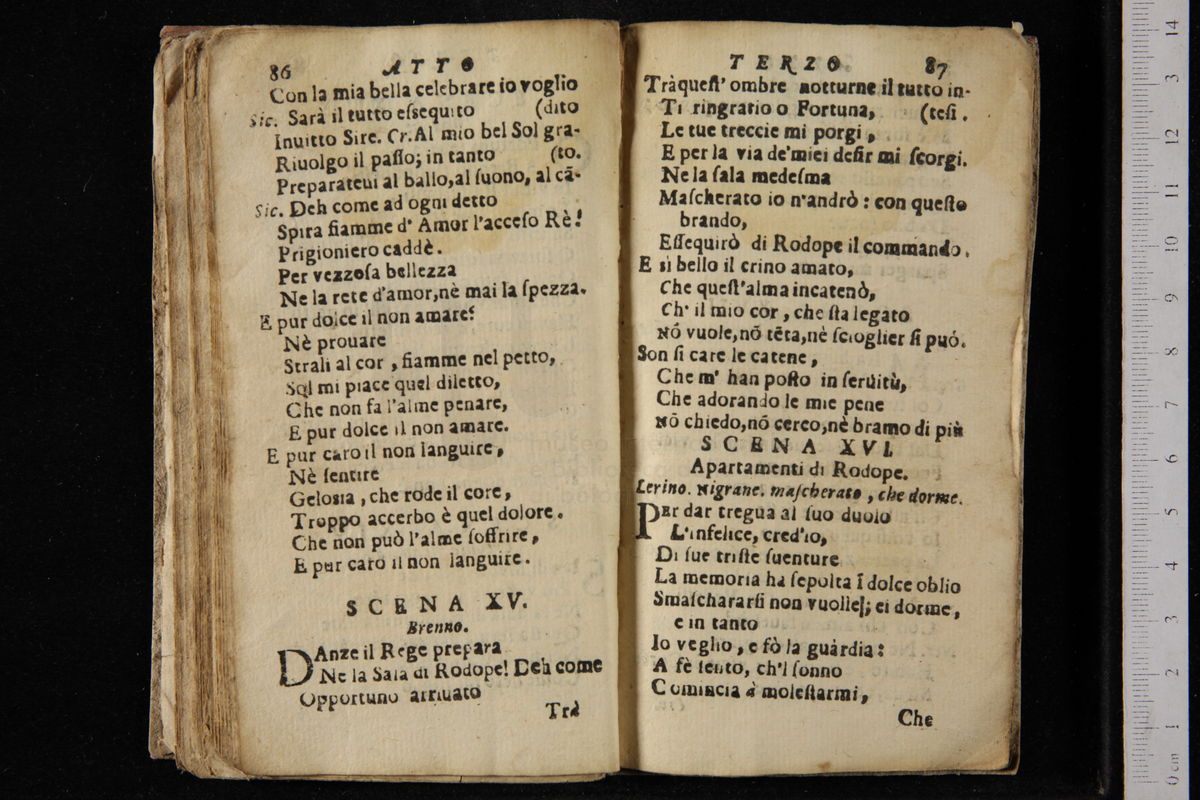 86 ATTO
Con la mia bella celebrare io voglio
Sic. Sarà il tutto eſsequito (dito
Inuitto Sire. Cr. Al mio bel Sol gra-
Riuolgo il paſſo; in tanto (to.
Preparateui al ballo, al ſuono, al cã-
Sic. Deh come ad ogni detto
Spira fiamme d' Amor l'acceſo Rè!
Prigioniero caddè.
Per vezzoſa bellezza
Ne la rete d'amor, nè mai la ſpezza.
E pur dolce il non amare!
Nè prouare
Strali al cor, fiamme nel petto,
Sol mi piace quel diletto,
Che non fa l'alme penare,
E pur dolce il non amare.
E pur caro il non languire,
Nè ſentire
Geloſia, che rode il core,
Troppo accerbo è quel dolore.
Che non può l'alme ſoffrire,
E pur caro il non languire.
SCENA XV.
Brenno.
DAnze il Rege prepara
Ne la Sala di Rodope! Deh come
Opportuno arriuato
Trà
TERZO. 87
Trà queſt' ombre notturne il tutto in-
Ti ringratio o Fortuna, (teſi.
Le tue treccie mi porgi,
E per la via de' miei deſir mi ſcorgi.
Ne la ſala medeſma
Maſcherato io n'andrò: con queſto
brando,
Eſſequirò di Rodope il commando.
E sì bello il crino amato,
Che queſt'alma incatenò,
Ch' il mio cor, che ſta legato
Nõ vuole, nõ tẽta, nè ſcioglier ſi può.
Son ſi care le catene,
Che m' han poſto in ſeruitù,
Che adorando le mie pene
Nõ chiedo, nõ cerco, nè bramo di più
SCENA XVI.
Apartamenti di Rodope.
Lerino. Nigrane. maſcherato, che dorme.
PEr dar tregua al ſuo duolo
L'infelice, cred'io,
Di ſue triſte ſuenture
La memoria ha ſepolta ĩ dolce oblio
Smaſchararſi non vuolle; ei dorme,
e in tanto
Io veglio, e fò la guàrdia:
A fè ſento, ch'l ſonno
Comincia à moleſtarmi,
Che